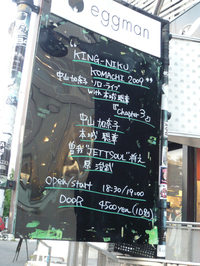 eggman
"KING-NIKU
KOMACHI 2009"
中山加奈子 ソロ・ライブ
with 本城聡章
『Chapter 3』
中山 加奈子
本城 聡章
"JETTSOUL"
OPEN/START 18:30/19:00
DOOR 4500yen (1D別)